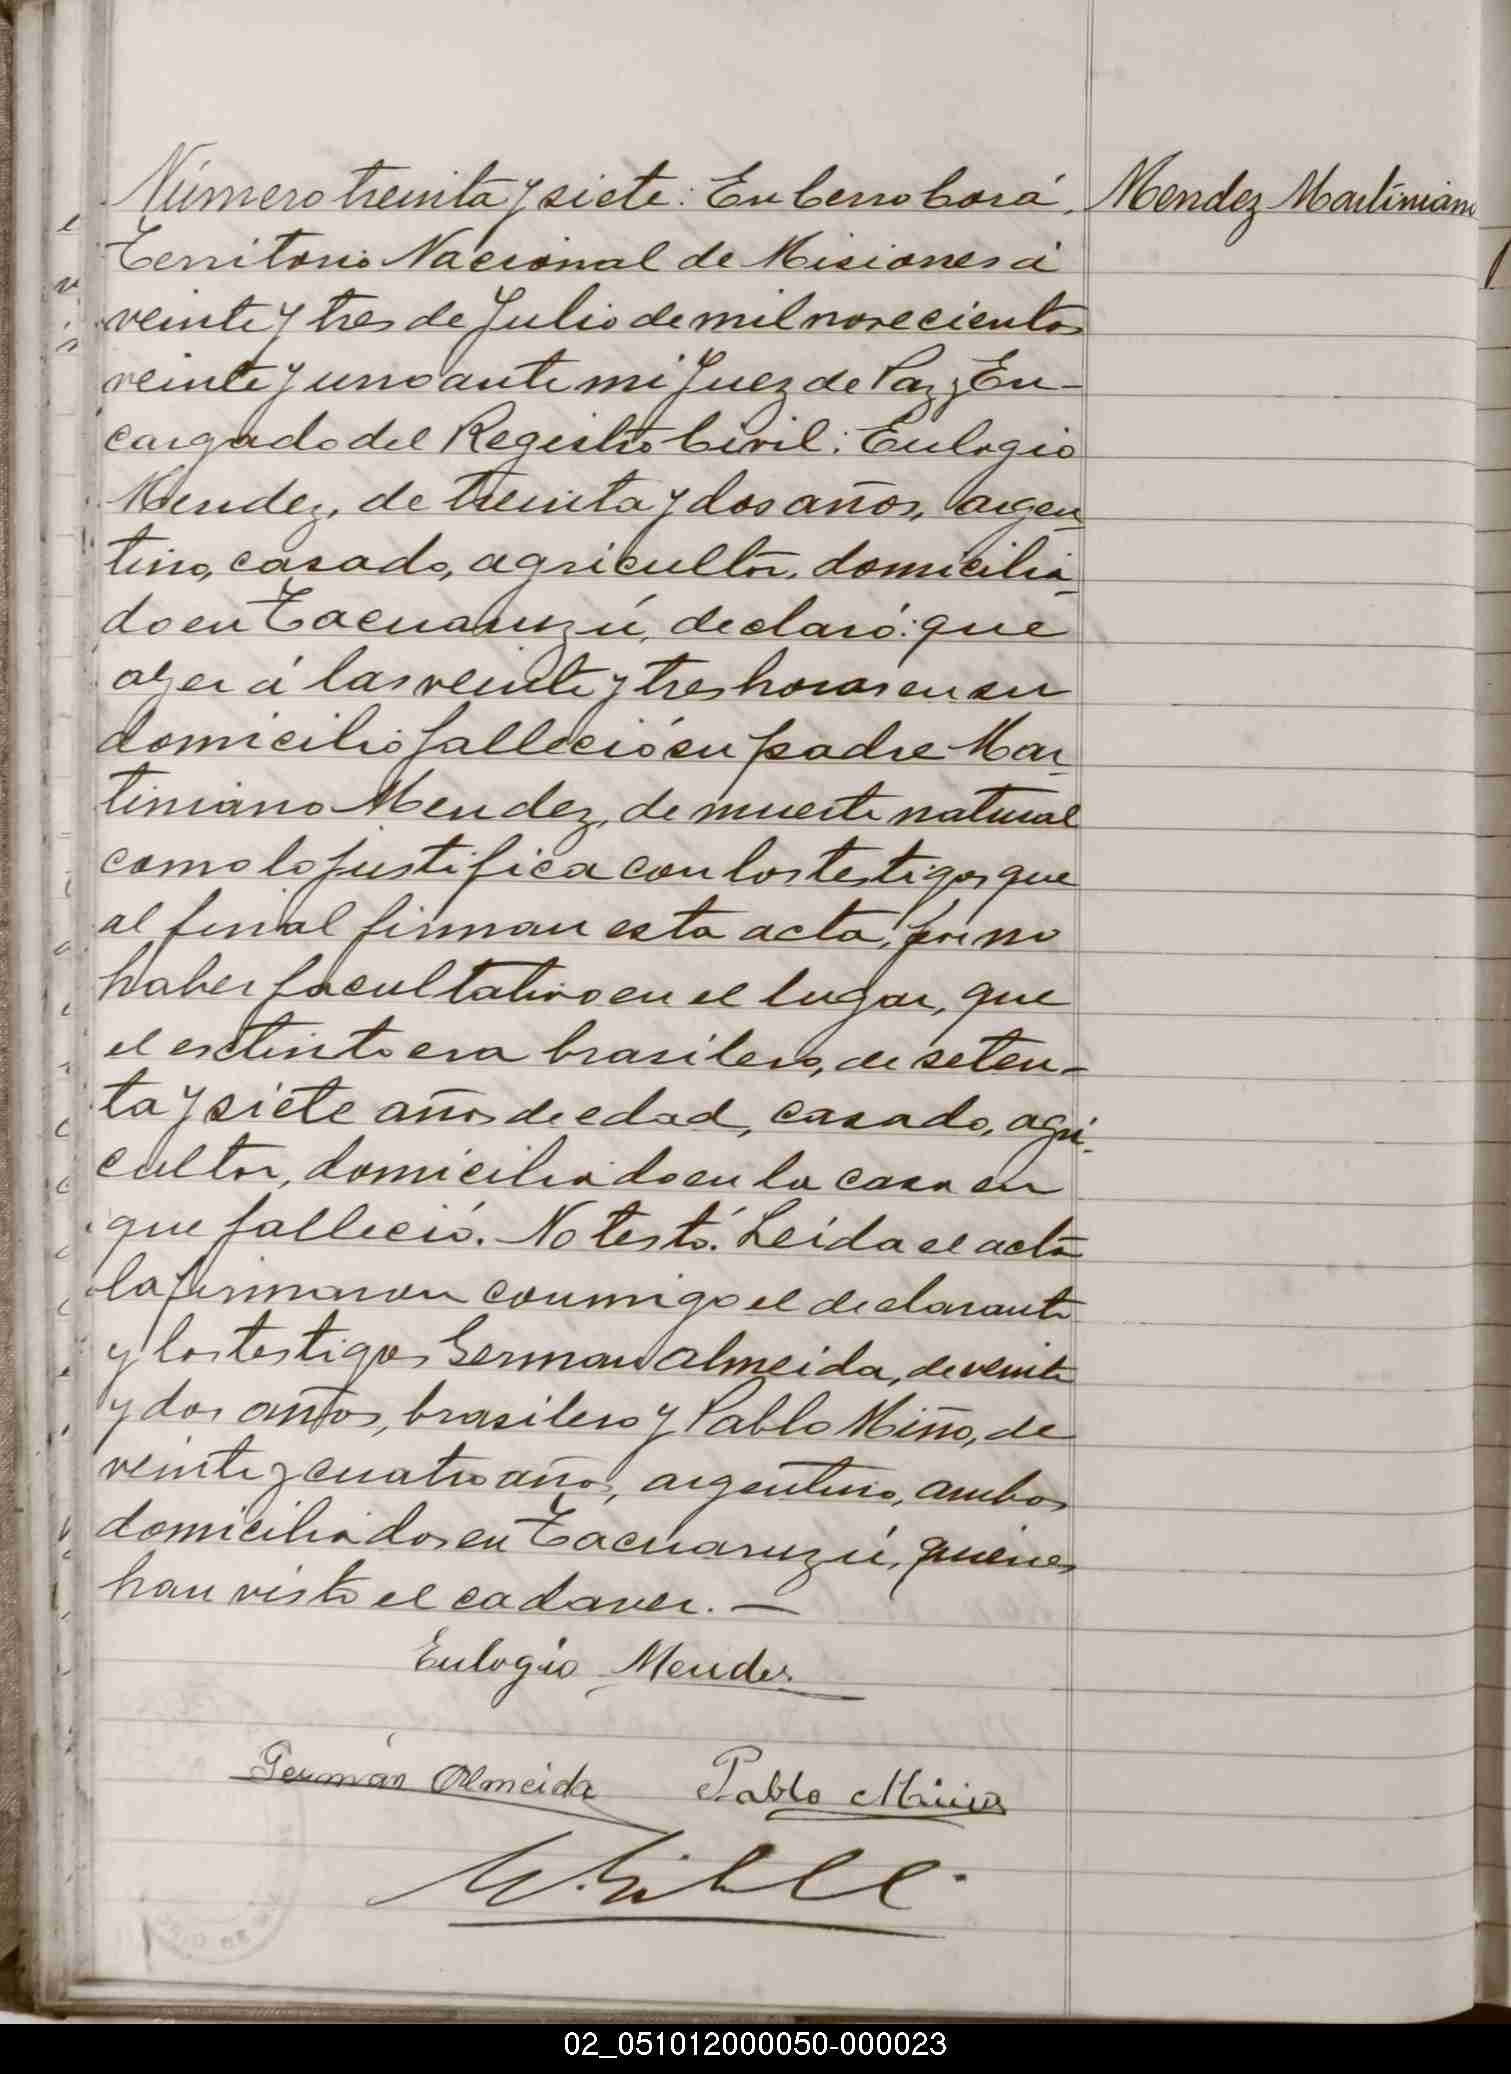 Número treinta y siete: En Cerro Corá,
Mendez Martiniano
Territorio Nacional de Misiones á
veinte y tres de Julio de mil novecientos
veinte y uno ante mi Juez de Paz y En-
cargado del Registro Civil: Eulogio
Mendez, de treinta y dos años, argen-
tino, casado, agricultor, domicilia-
do en Tacuaruzú, declaró: que
ayer á las veinte y tres horas en su
domicilio falleció su padre Mar-
tiniano Mendez, de muerte natural
como lo justifica con los testigos que
al final firman esta acta, por no
haber facultativo en el lugar, que
el extinto era brasilero, de seten-
ta y siete años de edad, casado, agri-
cultor, domiciliado en la casa en
que falleció. No testó. Leida el acta
la firmaron conmigo el declarante
y los testigos German Almeida, de veinte
y dos años, brasilero y Pablo Miño, de
veinte y cuatro años, argentino, ambos
domiciliados en Tacuaruzú, quienes
han visto el cadaver. —
Eulogio Mendez
Germán Almeida Pablo Miño
02_051012000050-000023